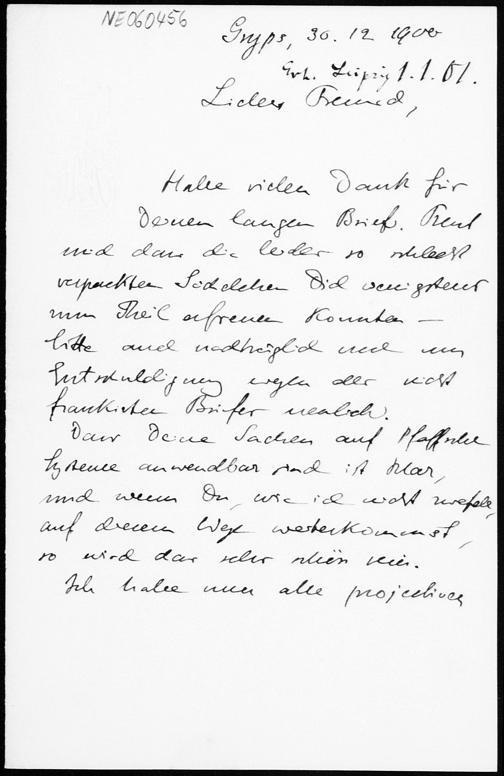 NE060456
Gryps, 30. 12 1900
Erh. Leipzig 1. 1. 01.
Lieber Freund,
Habe vielen Dank für
Deinen langen Brief. Freut
mich dass die leider so schlecht
verpackten Sächelchen Dich wenigstens
zum Theil erfreuen konnten –
bitte auch nachträglich noch um
Entschuldigung wegen des nicht
frankirten Briefes neulich.
Dass Deine Sachen auf Pfaffsche
Systeme anwendbar sind ist klar,
und wenn Du, wie ich nicht zweifele,
auf diesem Wege weiterkommst,
so wird das sehr schön sein.
Ich habe nun alle projectiven